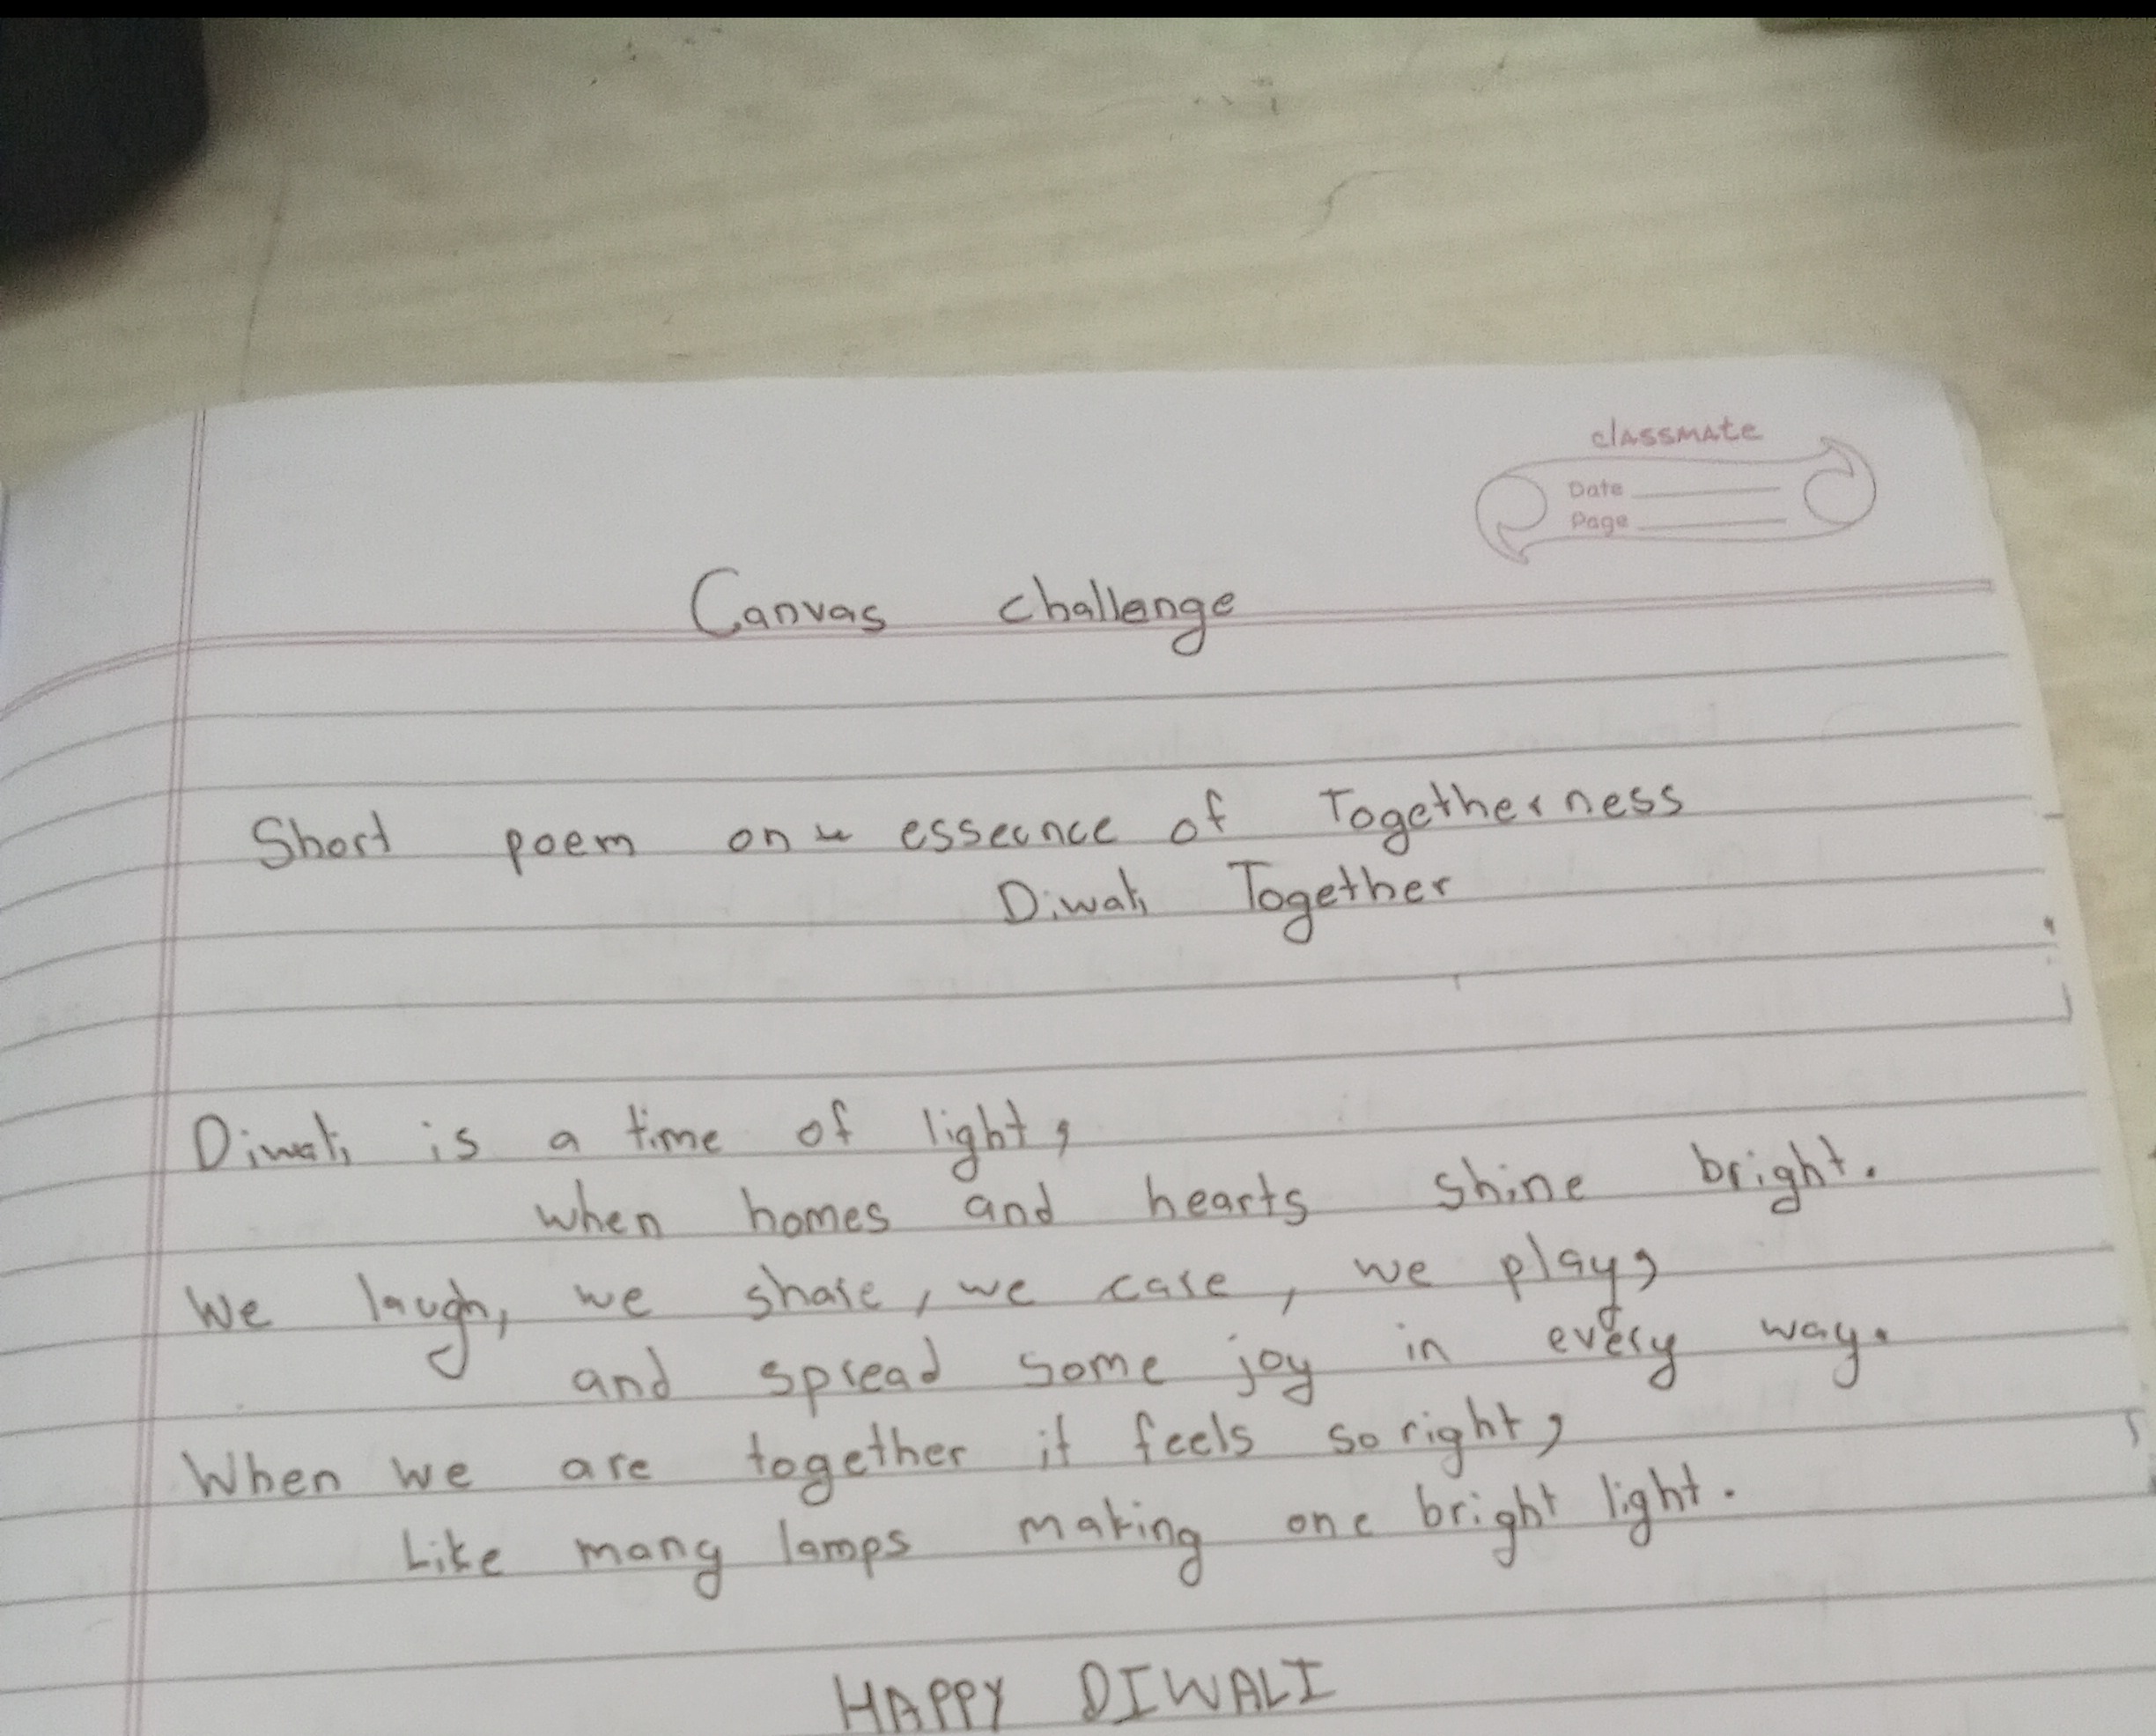 classmate
Date
Page
Canvas challenge
Short poem on essecnce of Togetherness
Diwali Together
Diwali is a time of light,
when homes and hearts shine bright.
We laugh, we share, we care, we play,
and spread some joy in every way.
When we are together it feels so right,
Like many lamps making one bright light.
HAPPY DIWALI